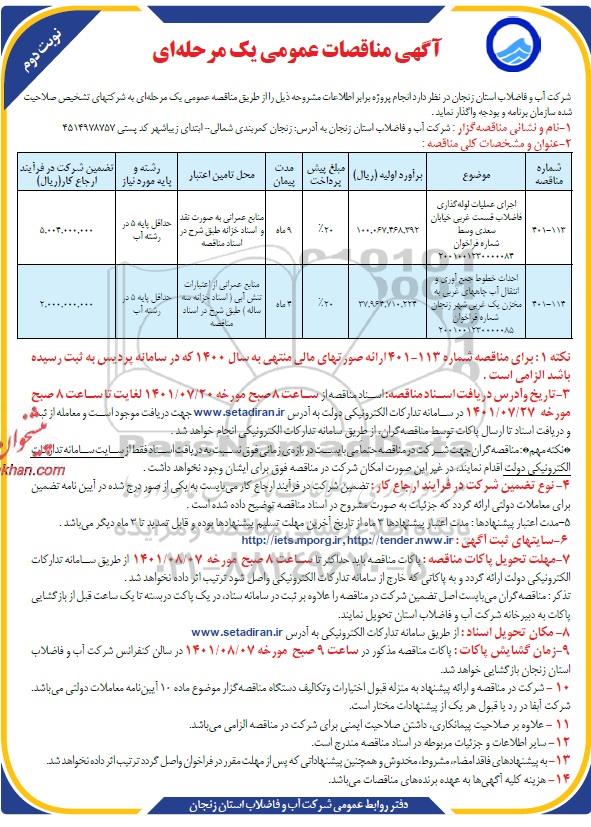 نوبت دوم
آگهی مناقصات عمومی یک مرحله‌ای
شرکت آب و فاضلاب استان زنجان در نظر دارد انجام پروژه برابر اطلاعات مشروحه ذیل را از طریق مناقصه عمومی یک مرحله‌ای به شرکتهای تشخیص صلاحیت
شده سازمان برنامه و بودجه واگذار نماید .
۱-نام و نشانی مناقصه‌گزار : شرکت آب و فاضلاب استان زنجان به آدرس: زنجان کمربندی شمالی-- ابتدای زیباشهر کد پستی ۴۵۱۴۹۷۸۷۵۷
۲-عنوان و مشخصات کلی مناقصه :
شماره مناقصه | موضوع | برآورد اولیه (ریال) | مبلغ پیش پرداخت | مدت پیمان | محل تامین اعتبار | رشته و پایه مورد نیاز | تضمین شرکت در فرآیند ارجاع کار(ریال)
۴۰۱-۱۱۳ | اجرای عملیات لوله‌گذاری فاضلاب قسمت غربی خیابان سعدی وسط شماره فراخوان ۲۰۰۱۰۰۱۲۳۰۰۰۰۰۸۴ | ۱۰۰,۰۶۷,۴۶۸,۳۹۲ | ۲۰٪ | ۹ ماه | منابع عمرانی به صورت نقد و اسناد خزانه طبق شرح در اسناد مناقصه | حداقل پایه ۵ در رشته آب | ۵,۰۰۴,۰۰۰,۰۰۰
۴۰۱-۱۱۴ | احداث خطوط جمع آوری و انتقال آب چاههای غربی به مخزن یک غربی شهر زنجان شماره فراخوان ۲۰۰۱۰۰۱۲۳۰۰۰۰۰۸۵ | ۳۷,۹۶۴,۷۱۰,۲۲۴ | ۲۰٪ | ۴ ماه | منابع عمرانی از اعتبارات تنش آبی ( اسناد خزانه سه ساله ) طبق شرح در اسناد مناقصه | حداقل پایه ۵ در رشته آب | ۲,۰۰۰,۰۰۰,۰۰۰
نکته ۱ : برای مناقصه شماره ۱۱۳-۴۰۱ ارائه صورتهای مالی منتهی به سال ۱۴۰۰ که در سامانه پردیس به ثبت رسیده
باشد الزامی است .
۳-تاریخ وآدرس دریافت اسناد مناقصه: اسناد مناقصه از ساعت ۸ صبح مورخه ۱۴۰۱/۰۷/۲۰ لغایت تا ساعت ۸ صبح
مورخه ۱۴۰۱/۰۷/۲۷ در سامانه تدارکات الکترونیکی دولت به آدرس www.setadiran.ir جهت دریافت موجود است و معامله از ثبت
و دریافت اسناد تا ارسال پاکات توسط مناقصه‌گران، از طریق سامانه تدارکات الکترونیکی انجام خواهد شد .
*نکته مهم*: مناقصه گران جهت شرکت در مناقصه حتما می بایست در بازه‌ی زمانی فوق نسبت به دریافت اسناد فقط از سایت سامانه تدارکات
الکترونیکی دولت اقدام نمایند، در غیر این صورت امکان شرکت در مناقصه فوق برای ایشان وجود نخواهد داشت .
۴-نوع تضمین شرکت در فرآیند ارجاع کار : تضمین شرکت در فرآیند ارجاع کار می‌بایست به یکی از صور درج شده در آیین نامه تضمین
برای معاملات دولتی ارائه گردد که جزئیات به صورت مشروح در اسناد مناقصه توضیح داده شده است .
۵-مدت اعتبار پیشنهادها : مدت اعتبار پیشنهادها ۳ ماه از تاریخ آخرین مهلت تسلیم پیشنهادها بوده و قابل تمدید تا ۳ ماه دیگر می‌باشد .
۶-سایتهای ثبت آگهی : http://iets.mporg.ir, http://tender.nww.ir
۷-مهلت تحویل پاکات مناقصه : پاکات مناقصه باید حداکثر تا ساعت ۸ صبح مورخه ۱۴۰۱/۰۸/۰۷ از طریق سامانه تدارکات
الکترونیکی دولت ارائه گردد و به پاکاتی که خارج از سامانه تدارکات الکترونیکی واصل شود ترتیب اثر داده نخواهد شد .
تذکر : مناقصه گران می‌بایست اصل تضمین شرکت در مناقصه را علاوه بر ثبت در سامانه ستاد، در یک پاکت دربسته تا یک ساعت قبل از بازگشایی
پاکات به دبیرخانه شرکت آب و فاضلاب استان تحویل نمایند.
۸- مکان تحویل اسناد : از طریق سامانه تدارکات الکترونیکی به آدرس www.setadiran.ir
۹-زمان گشایش پاکات : پاکات مناقصه مذکور در ساعت ۹ صبح مورخه ۱۴۰۱/۰۸/۰۷ در سالن کنفرانس شرکت آب و فاضلاب
استان زنجان بازگشایی خواهد شد.
۱۰ - شرکت در مناقصه و ارائه پیشنهاد به منزله قبول اختیارات وتکالیف دستگاه مناقصه‌گزار موضوع ماده ۱۰ آیین‌نامه معاملات دولتی می‌باشد.
شرکت آبفا در رد یا قبول هر یک از پیشنهادات مختار است.
۱۱ - علاوه بر صلاحیت پیمانکاری، داشتن صلاحیت ایمنی برای شرکت در مناقصه الزامی می‌باشد.
۱۲- سایر اطلاعات و جزئیات مربوطه در اسناد مناقصه مندرج است.
۱۳- به پیشنهادهای فاقد امضاء، مشروط، مخدوش و همچنین پیشنهاداتی که پس از مهلت مقرر در فراخوان واصل گردد ترتیب اثر داده نخواهد شد.
۱۴- هزینه کلیه آگهی‌ها به عهده برنده‌های مناقصات می‌باشد.
دفتر روابط عمومی شرکت آب و فاضلاب استان زنجان